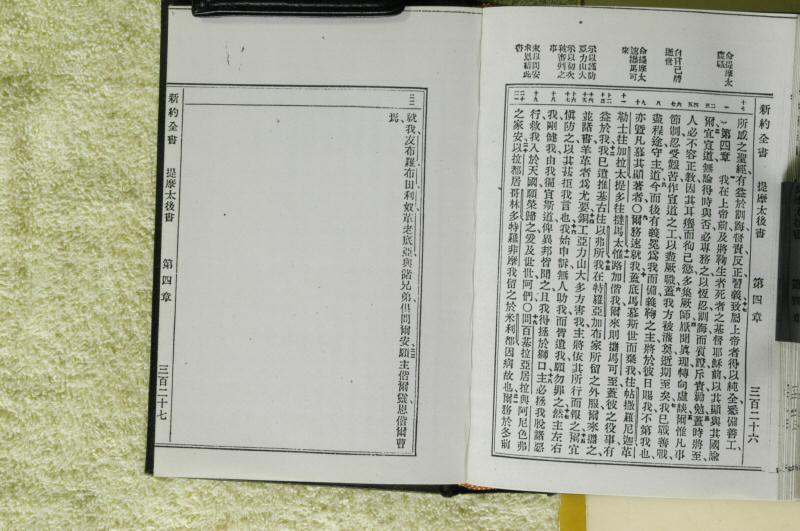 新約全書 提摩太後書 第四章 三百二十六
命提摩太
盡職
自言己將
逝世
命提摩太
速攜馬可
來
示以謹防
亞力山大
示以初次
被審判之
事
末以問安
求恩結此
書
所感之聖經有益於訓誨督責反正習義致屬上帝者得以純全愛備善工
第四章 我在上帝前及將鞫生者死者之基督耶穌前以其顯與其國諭
爾宜宣道無論得時與否必專務之以恆忍訓誨而質證斥責勸勉蓋時將至
人必不容正教因其耳癢而徇己慾多集厥師厭聞眞理轉向虛談爾惟凡事
節制忍受艱苦作宣道之工以盡厥職蓋我方被灌奠近期至矣我已戰善戰
盡程途守主道今而後有義冕爲我而備義鞫之主將於彼日賜我不第我也
亦曁凡慕其顯著者〇爾務速就我蓋底馬慕斯世而棄我往帖撒羅尼迦革
勒士往加拉太提多往撻馬太惟路加偕我爾來則攜馬可至蓋彼之役事有
益於我我已遣推基古往以弗所我在特羅亞加布家所留之外服爾來攜之
並諸書羊革者爲尤要銅工亞力山大多方害我主將依其所行而報之爾宜
慎防之以其甚拒我言也我始申訴無人助我而皆遺我願勿罪之然主左右
我剛健我由我徧宣斯道俾異邦皆聞之且我得拯於獅口主必拯我脫諸惡
行救我入於天國願榮歸之爰及世世阿們〇問百基拉亞居拉與阿尼色弗
之家安以拉都居哥林多特羅非摩我留之於米利都因病故也爾務於冬前
就我友布羅布田利奴革老底亞與諸兄弟俱問爾安願主偕爾靈恩偕爾曹
焉
新約全書 提摩太後書 第四章 三百二十七